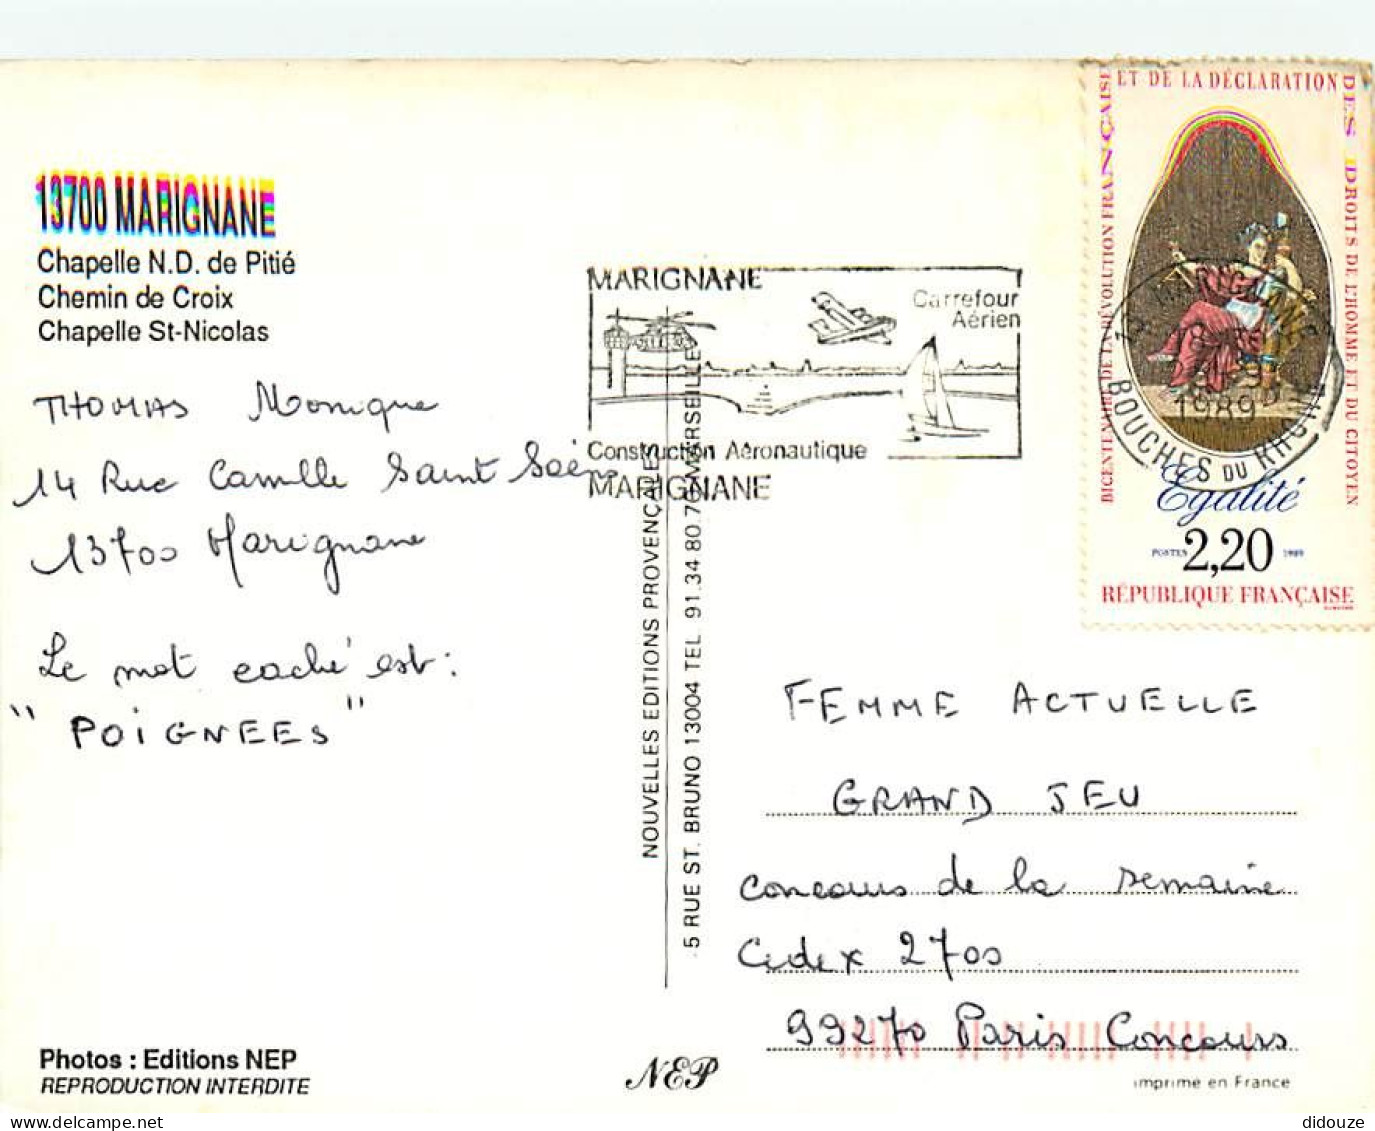 13700 MARIGNANE
Chapelle N.D. de Pitié
Chemin de Croix
Chapelle St-Nicolas
THOMAS Monique
14 Rue Camille Saint Saëns
13700 Marignane
Le mot caché est :
" POIGNEES "
Photos : Editions NEP
REPRODUCTION INTERDITE
MARIGNANE
Carrefour
Aérien
Construction Aéronautique
MARIGNANE
NOUVELLES EDITIONS PROVENÇALES
5 RUE ST. BRUNO 13004 TEL 91.34 80.70 MARSEILLE
NEP
BICENTENAIRE DE LA RÉVOLUTION FRANÇAISE
ET DE LA DÉCLARATION
DES DROITS DE L'HOMME ET DU CITOYEN
13 MARIGNANE
1989
BOUCHES DU RHONE
Egalité
POSTES 2,20 1989
RÉPUBLIQUE FRANÇAISE
FEMME ACTUELLE
GRAND JEU
concours de la semaine
Cedex 2700
99270 Paris Concours
imprimé en France
didouze